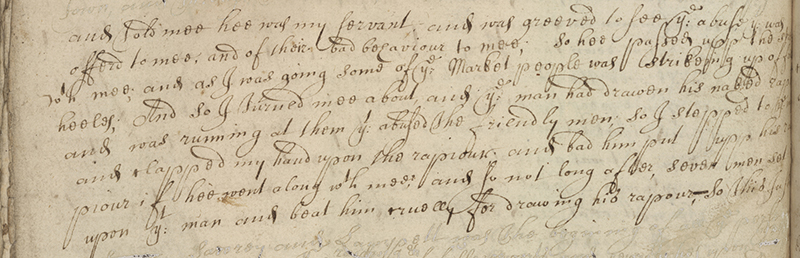 and told mee hee was my servant, and was greeved to see ye: abuse yt was
offerd to mee; and of their bad behaviour to mee; so hee passed upp the s
wth mee; and as I was going some of ye: Market people was strikeing up of
heels; And so I turned mee about, and; ye: man had drawen his naked rap
and was running at them yt: abused the friendly men, so I stepped to
and clapped my hand upon the rapiour, and bad him put itt upp his
piour if hee went along wth mee; and so not long after, seven men set
upon ye: man and beat him cruelly for drawing his rapour, so this